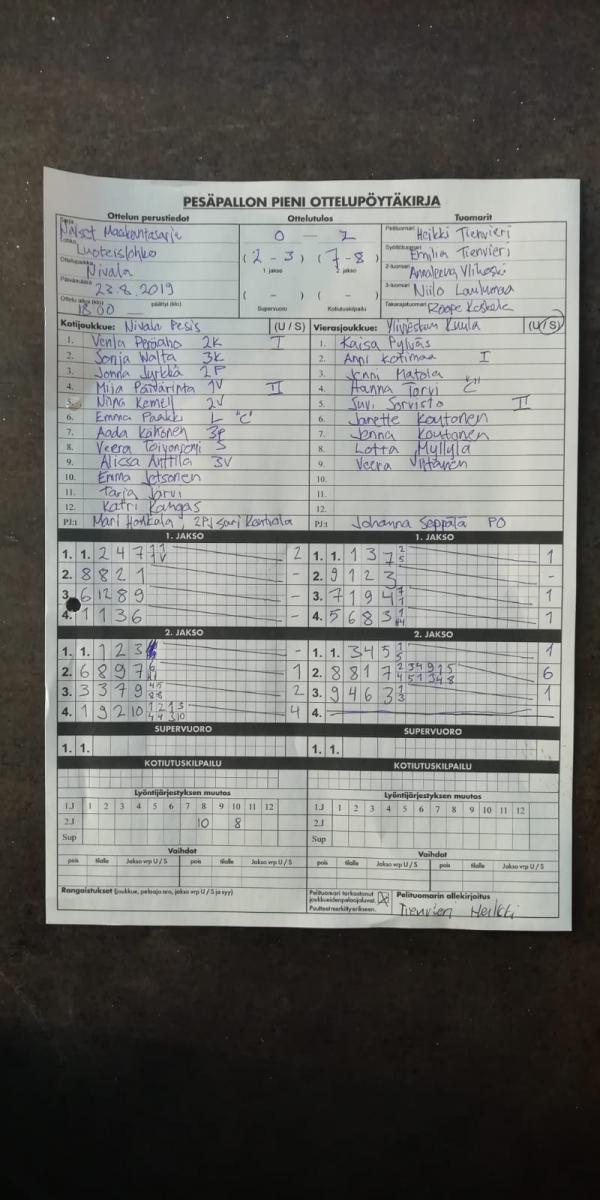 PESÄPALLON PIENI OTTELUPÖYTÄKIRJA
Ottelun perustiedot Ottelutulos Tuomarit
Naiset Maakuntasarja
Luoteislohko
Nivala
Päivämäärä 23.8.2019
Ottelu alkoi (klo) 18.00 päättyi (klo)
0 – 2
(2 – 3) (7 – 8)
1 jakso 2 jakso
( – ) ( – )
Supervuoro Kotiutuskilpailu
Pelituomari Heikki Tienvieri
Syöttötuomari Emilia Tienvieri
2-tuomari Annaleena Ylikoski
3-tuomari Niilo Laulumaa
Takarajatuomari Roope Koskela
Kotijoukkue: Nivala Pesis (U / S)
1. Venla Peräaho 2K I
2. Sonja Walta 3K
3. Jonna Jyrkkä 2P
4. Mija Päivärinta 1V II
5. Niina Kemell 2V
6. Emma Paakki L "C"
7. Aada Kähönen 3P
8. Veera Toivoniemi S
9. Alissa Anttila 3V
10. Emma
11. Tarja Järvi
12. Katri Kangas
PJ:t Mari Honkala, 2PJ Sari
Vierasjoukkue: Ylivieskan Kuula (U / S)
1. Kaisa Pylväs
2. Anni Kotimaa I
3. Jenni Matola
4. Hanna Torvi "C"
5. Suvi Sorvisto II
6. Janette Koutonen
7. Jenna Koutonen
8. Lotta Myllylä
9. Veera
10.
11.
12.
PJ:t Johanna Seppälä PO
1. JAKSO
1. 1. 2 4 7 1 1 V 2
2. 8 8 2 1 -
3. 6 12 8 9 -
4. 1 1 3 6 -
1. JAKSO
1. 1. 1 3 7 2 5 1
2. 9 1 2 3 -
3. 7 1 9 4 7 1 1
4. 5 6 8 3 1
2. JAKSO
1. 1. 1 2 3 -
2. 6 8 9 7 1
3. 3 3 7 9 4 5 8 8 2
4. 1 9 2 10 1 2 1 3 4 4 3 10 4
2. JAKSO
1. 1. 3 4 5 1 5 1
2. 8 8 1 7 2 3 4 9 1 5 4 5 1 3 4 8 6
3. 9 4 6 3 1 3 1
4.
SUPERVUORO SUPERVUORO
1. 1. 1. 1.
KOTIUTUSKILPAILU KOTIUTUSKILPAILU
Lyöntijärjestyksen muutos Lyöntijärjestyksen muutos
1.J 1 2 3 4 5 6 7 8 9 10 11 12 1.J 1 2 3 4 5 6 7 8 9 10 11 12
2.J 10 8 2.J
Sup Sup
Vaihdot Vaihdot
pois tilalle Jakso vrp U / S pois tilalle Jakso vrp U / S pois tilalle Jakso vrp U / S pois tilalle Jakso vrp U / S
Rangaistukset (joukkue, pelaaja nro, jakso vrp U / S ja syy)
Pelituomari tarkastanut
joukkueiden pelaajaluvat.
Puutteet merkitty erikseen.
Pelituomarin allekirjoitus
Tienvieri Heikki